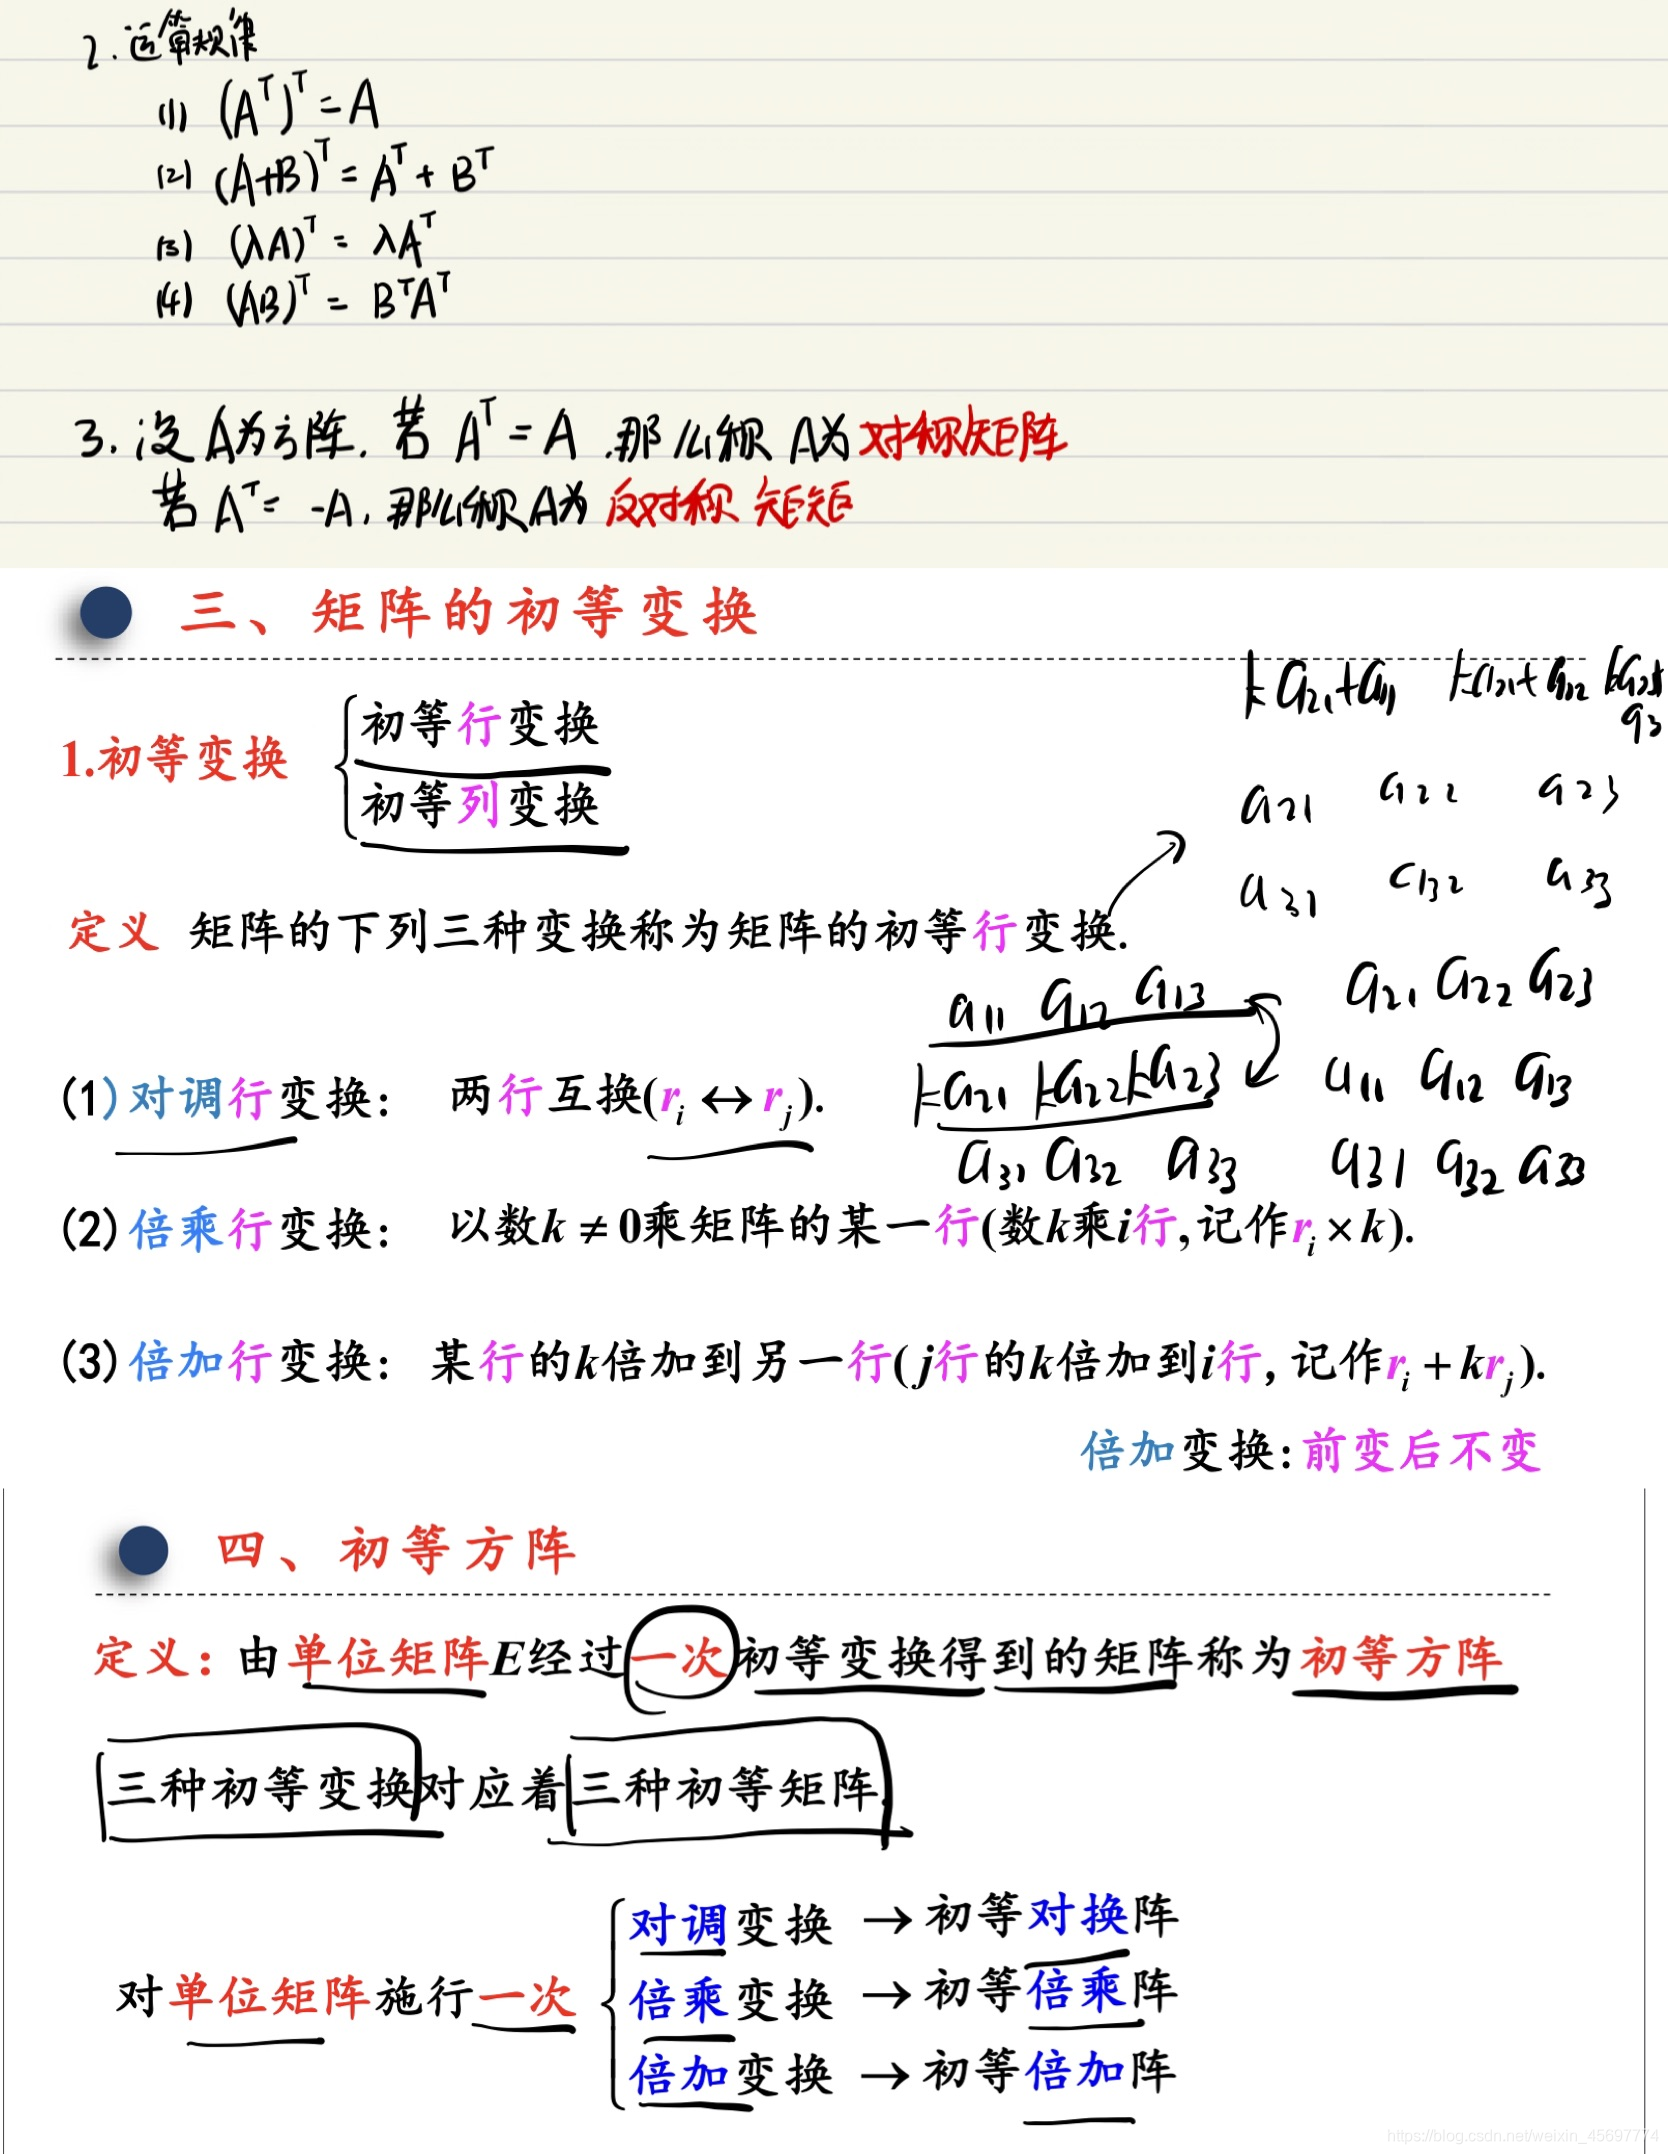 2.运算规律
(1) (Aᵀ)ᵀ=A
(2) (A+B)ᵀ=Aᵀ+Bᵀ
(3) (λA)ᵀ=λAᵀ
(4) (AB)ᵀ=BᵀAᵀ
3.设A为方阵.若Aᵀ=A.那么称A为对称矩阵
若Aᵀ=-A,那么称A为反对称矩矩
三、矩阵的初等变换
ka21+a11 ka21+a12 ka23+
a3
1.初等变换
初等行变换
初等列变换
a21 a22 a23
a31 a32 a33
定义 矩阵的下列三种变换称为矩阵的初等行变换.
a11 a12 a13 a21 a22 a23
(1)对调行变换： 两行互换(rᵢ↔rⱼ).
ka21 ka22 ka23 a11 a12 a13
a31 a32 a33 a31 a32 a33
(2)倍乘行变换： 以数k≠0乘矩阵的某一行(数k乘i行,记作rᵢ×k).
(3)倍加行变换： 某行的k倍加到另一行(j行的k倍加到i行,记作rᵢ+krⱼ).
倍加变换:前变后不变
四、初等方阵
定义：由单位矩阵E经过一次初等变换得到的矩阵称为初等方阵
三种初等变换对应着三种初等矩阵.
对单位矩阵施行一次
对调变换→初等对换阵
倍乘变换→初等倍乘阵
倍加变换→初等倍加阵
https://blog.csdn.net/weixin_45697774